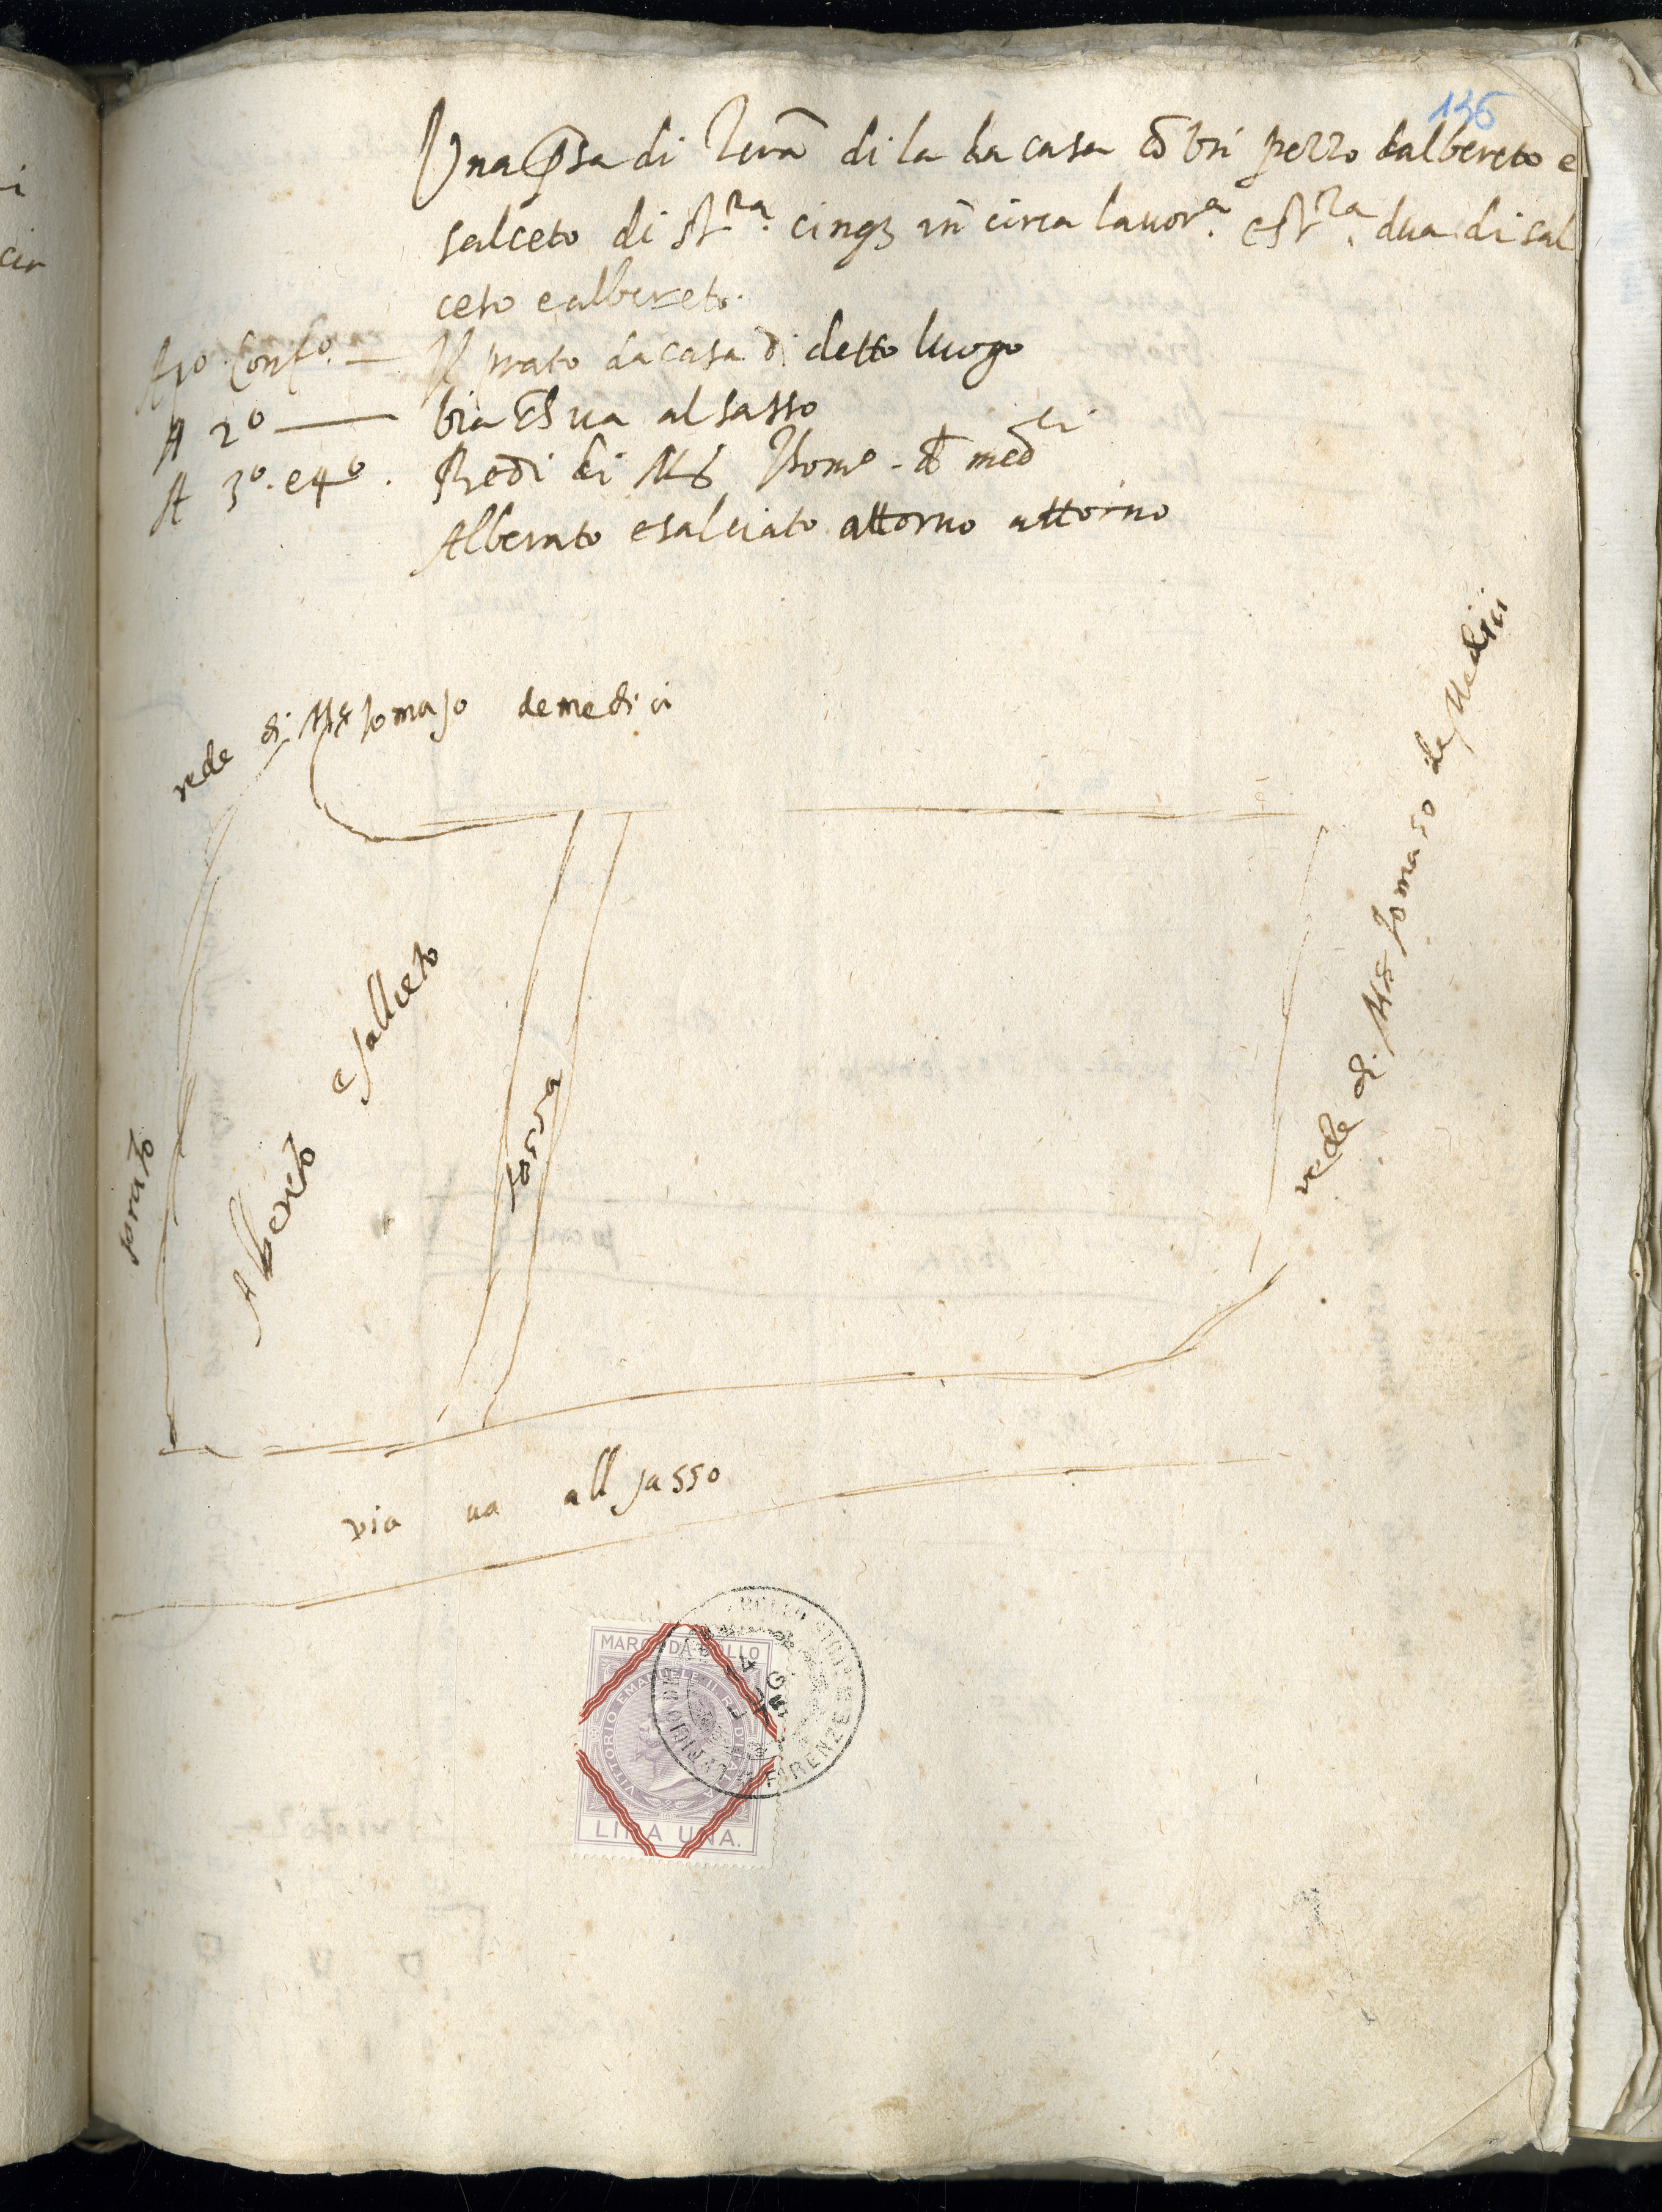 136
Una p̄sa di Terrā di la da casa cō un pezzo dalbereto e
salceto di st.ra cinq3 in circa lavor.a e st.ra dua di sal
ceto e albereto.
A p.o Conf.o — Il prato da casa di detto luogo
A 2o — via ch̄ va al sasso
A 3o. e 4o. Redi di Ms Thom.o de med.ci
Alberato e salciato attorno attorno
rede di Ms tomaso de medici
rede di Ms tomaso de Medici
prato
Albereto e salceto
fossa
via va all sasso
MARCA DA BOLLO
VITTORIO EMANUELE II RE D'ITALIA
LIRA UNA.
FIRENZE